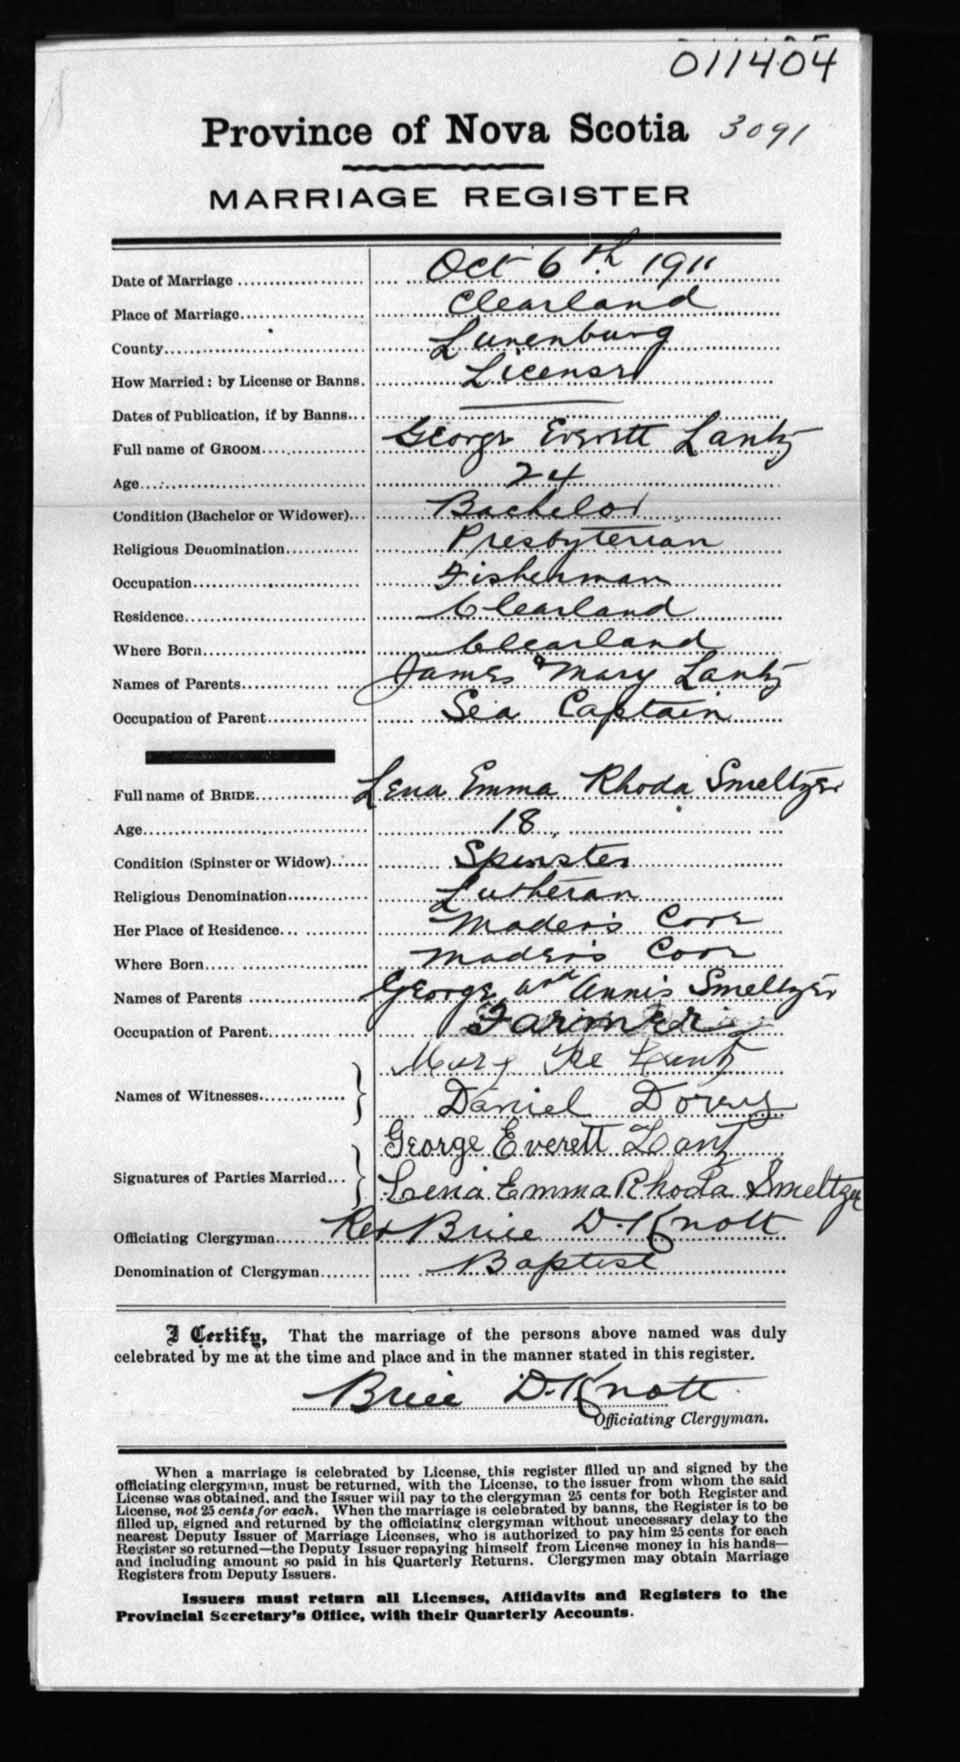 011404
Province of Nova Scotia 3091
MARRIAGE REGISTER
Date of Marriage Oct 6th 1911
Place of Marriage Clearland
County Lunenburg
How Married: by License or Banns. License
Dates of Publication, if by Banns
Full name of GROOM George Everett Lantz
Age 24
Condition (Bachelor or Widower) Bachelor
Religious Denomination Presbyterian
Occupation Fisherman
Residence Clearland
Where Born Clearland
Names of Parents James & Mary Lantz
Occupation of Parent Sea Captain
Full name of BRIDE Lena Emma Rhoda Smeltzer
Age 18
Condition (Spinster or Widow) Spinster
Religious Denomination Lutheran
Her Place of Residence Mader's Cove
Where Born Mader's Cove
Names of Parents George and Annis Smeltzer
Occupation of Parent Farmer
Mary
Names of Witnesses
Daniel
George Everett Lantz
Signatures of Parties Married
Lena Emma Rhoda Smeltzer
Officiating Clergyman Rev Brice D. Knott
Denomination of Clergyman Baptist
I Certify, That the marriage of the persons above named was duly
celebrated by me at the time and place and in the manner stated in this register.
Brice D. Knott
Officiating Clergyman.
When a marriage is celebrated by License, this register filled up and signed by the
officiating clergyman, must be returned, with the License, to the issuer from whom the said
License was obtained, and the Issuer will pay to the clergyman 25 cents for both Register and
License, not 25 cents for each. When the marriage is celebrated by banns, the Register is to be
filled up, signed and returned by the officiating clergyman without unecessary delay to the
nearest Deputy Issuer of Marriage Licenses, who is authorized to pay him 25 cents for each
Register so returned—the Deputy Issuer repaying himself from License money in his hands—
and including amount so paid in his Quarterly Returns. Clergymen may obtain Marriage
Registers from Deputy Issuers.
Issuers must return all Licenses, Affidavits and Registers to the
Provincial Secretary's Office, with their Quarterly Accounts.